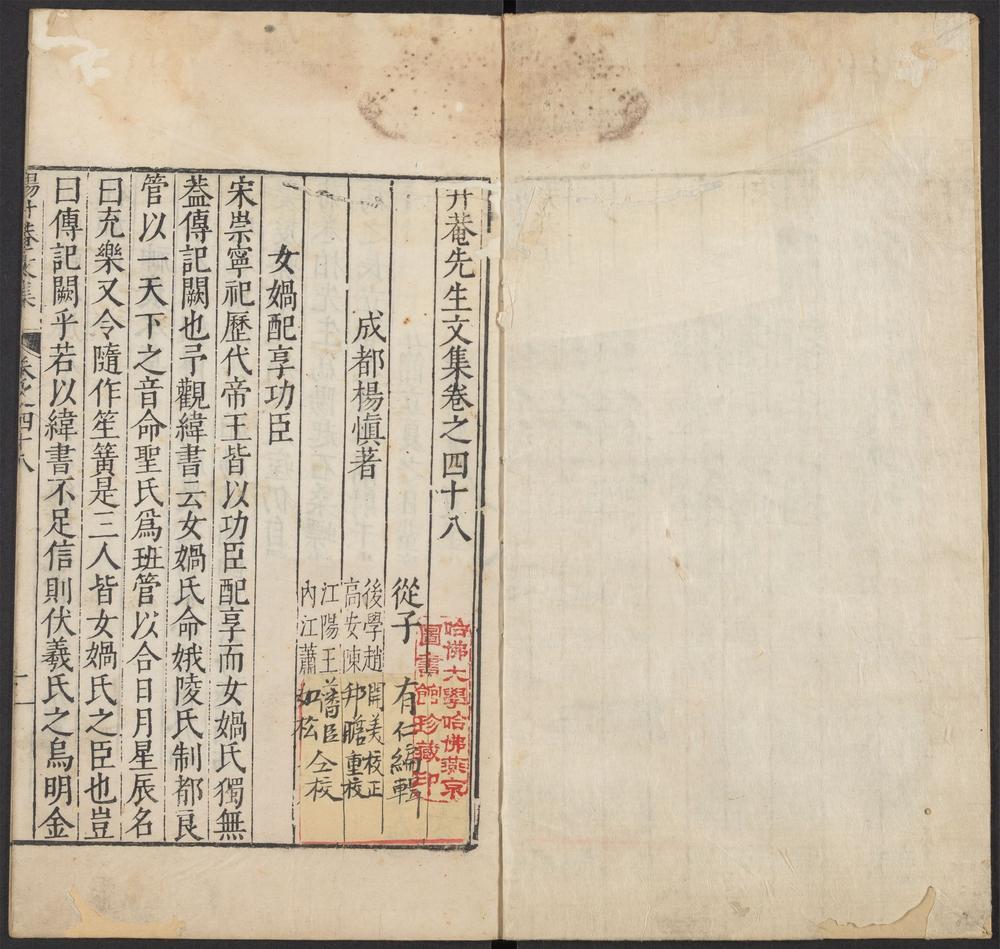 升菴先生文集卷之四十八
從子 有仁編輯
成都楊慎著
後學趙開美校正
高安陳邦瞻重校
江陽王藩臣
內江蕭如松 仝校
女媧配享功臣
宋崇寧祀歷代帝王皆以功臣配享而女媧氏獨無
葢傳記闕也予觀緯書云女媧氏命娥陵氏制都良
管以一天下之音命聖氏爲班管以合日月星辰名
曰充樂又令隨作笙簧是三人皆女媧氏之臣也豈
曰傳記闕乎若以緯書不足信則伏羲氏之烏明金
楊升菴文集
卷之四十八
一
哈佛大學哈佛燕京
圖書館珍藏印